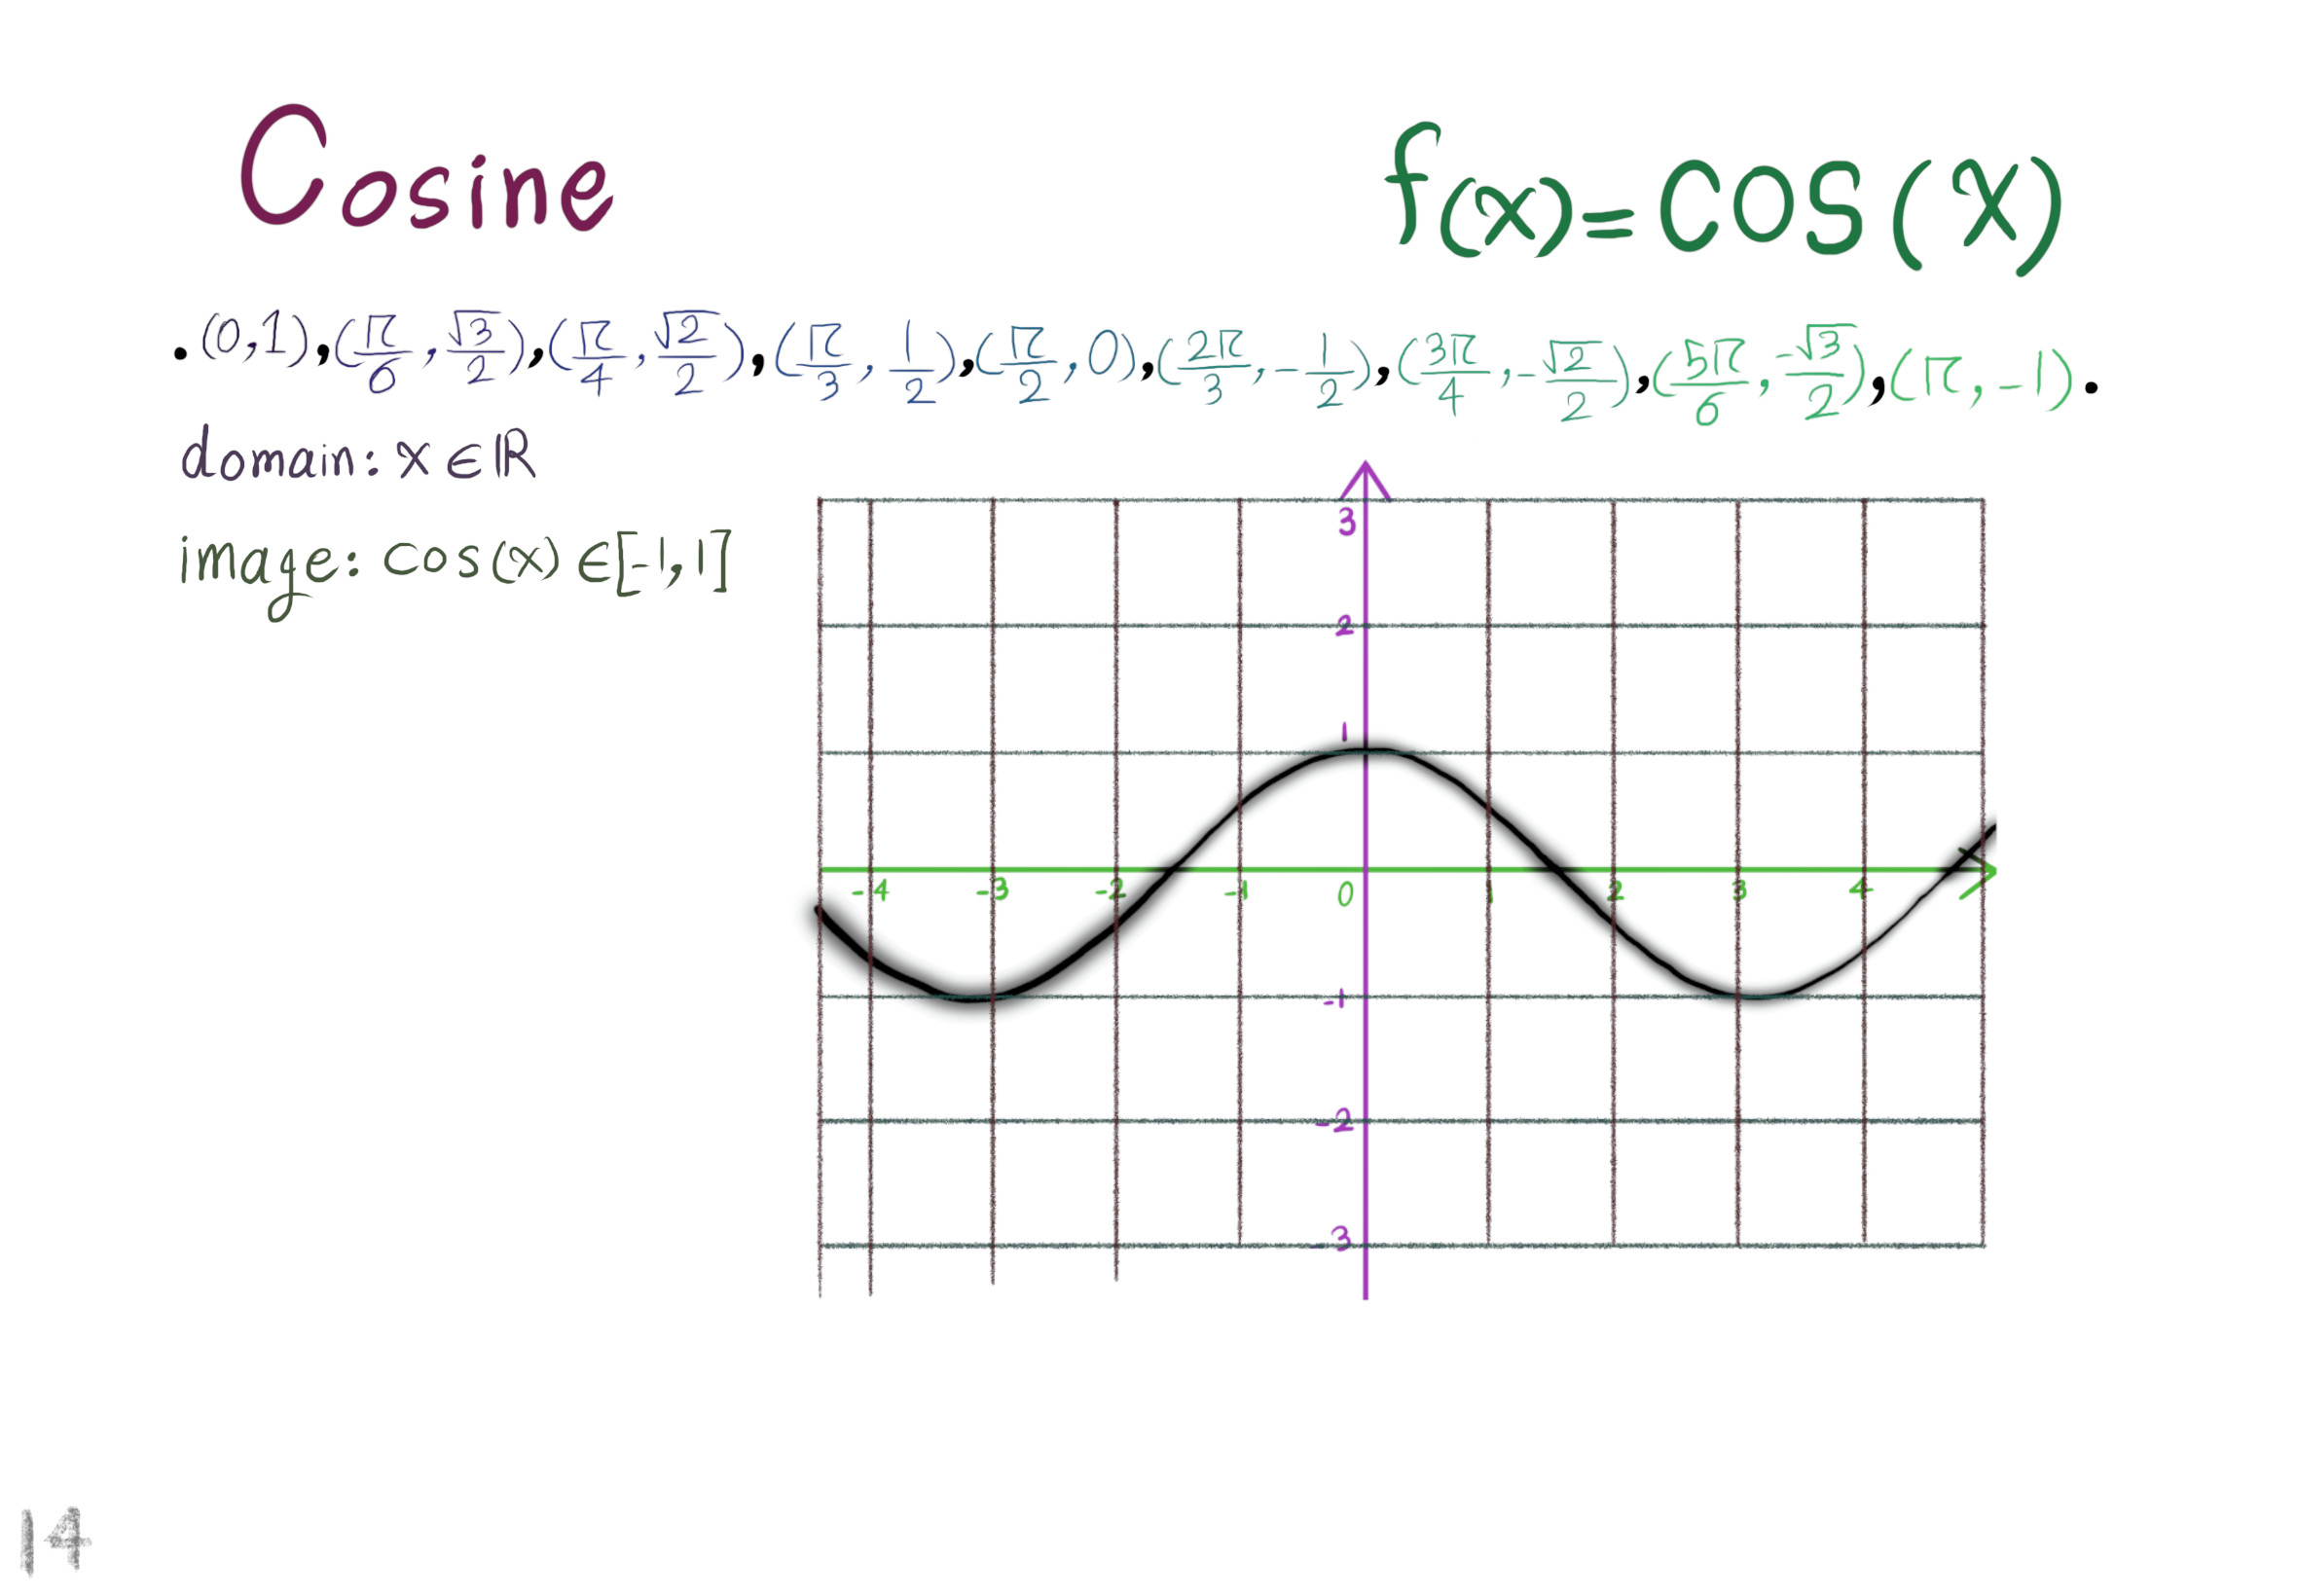 Cosine
f(x)=COS(X)
.(0,1),(π/6,√3/2),(π/4,√2/2),(π/3,1/2),(π/2,0),(2π/3,-1/2),(3π/4,-√2/2),(5π/6,-√3/2),(π,-1).
domain: x∈ℝ
image: cos(x)∈[-1,1]
3
2
1
-4 -3 -2 -1 0 1 2 3 4
-1
-2
-3
14